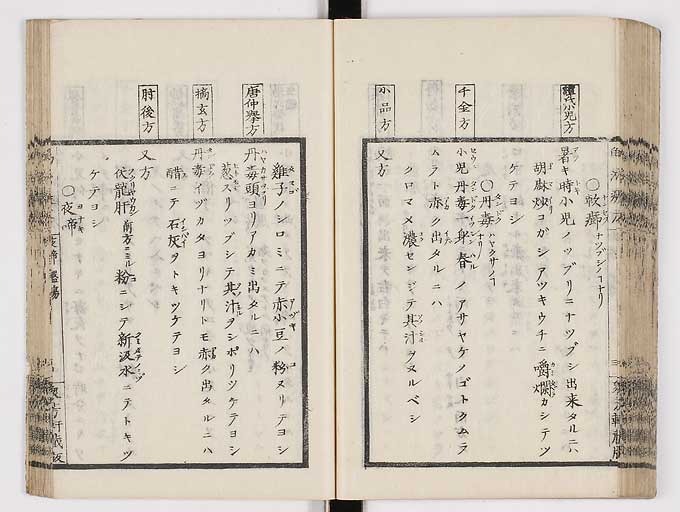 ○軟癤 ナツブシノコナリ
羅氏小児方
暑キ時小児ノツブリニナツブシ出来タルニハ
胡麻炒コガシアツキウチニ嚼爛カシテツ
ケテヨシ
○丹毒 ハヤクサノコナリ
千金方
小児丹毒一身春ノアサヤケノゴトクムラ
ムラト赤ク出タルニハ
小品方
又方
クロマメ濃センジテ其汁ヲヌルベシ
雞子ノシロミニテ赤小豆ノ粉ヌリテヨシ
唐仲挙方
丹毒頭ヨリアカミ出タルニハ
葱スリツブシテ其汁ヲシボリツケテヨシ
摘玄方
丹毒イヅカタヨリナリトモ赤ク出タルニハ
醋ニテ石灰ヲトキツケテヨシ
肘後方
又方
伏龍肝 前方ニミユル 粉ニシテ新汲水ニテトキツ
ケテヨシ
○夜啼